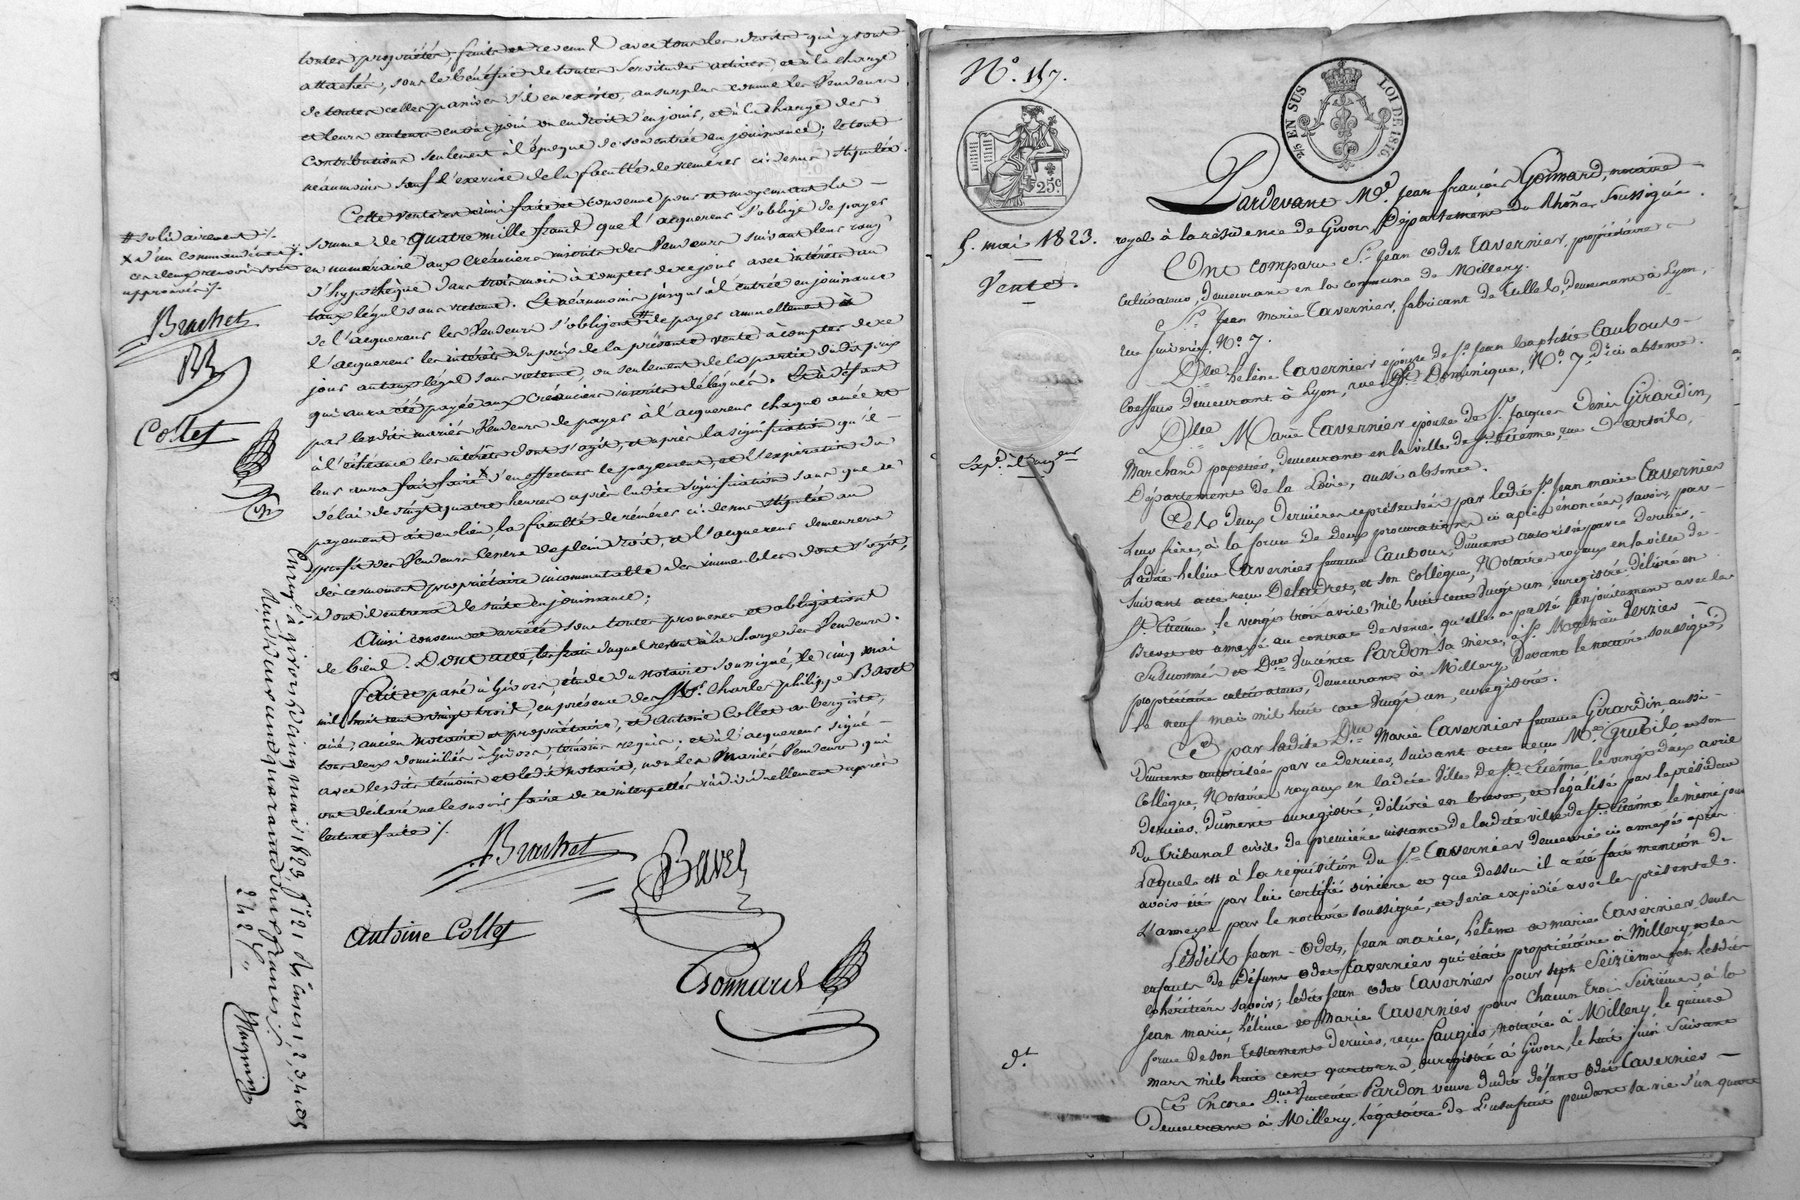 toutes propriétés, fruits et revenus avec tous les droits qui y sont
attachés, sous le bénéfice de toutes servitudes actives et à la charge
de toutes celles passives s'il en existe, au surplus comme les Vendeurs
et leurs auteurs en ont joui ou eu droit d'en jouir, et à la charge des
contributions seulement à l'époque de son entrée en jouissance; le tout
néanmoins sauf l'exercice de la faculté de réméré ci-dessus stipulée.
Cette vente est ainsi faite et convenue pour et moyennant la
somme de quatre mille francs que l'acquéreur s'oblige de payer
en numéraire aux Créanciers inscrits des Vendeurs suivant leur rang
d'hypothèque dans trois mois à compter de ce jour avec intérêt au
taux légal sans retenue. Et néanmoins jusqu'à l'entrée en jouissance
de l'acquéreur les Vendeurs s'obligent # de payer annuellement à
l'acquéreur les intérêts du prix de la présente vente à compter de ce
jour au taux légal sans retenue ou seulement de la partie du dit prix
qui aura été payée aux Créanciers inscrits délégués. Et à défaut
par lesdits mariés Vendeurs de payer à l'acquéreur chaque année et
à l'échéance les intérêts dont s'agit, et après la signification qu'il
leur aura fait faire x d'en effectuer le payement, et l'expiration du
délai de vingt quatre heures après ladite signification sans que ce
payement ait eu lieu, la faculté de réméré ci-dessus stipulée au
profit des Vendeurs cessera de plein droit, et l'acquéreur demeurera
dès ce moment propriétaire incommutable des immeubles dont s'agit,
dont il entrera de suite en jouissance;
Ainsi convenu et arrêté sous toutes promesses et obligations
de biens. Dont acte, les frais duquel restent à la charge des Vendeurs.
Fait et passé à Givors, étude du notaire soussigné, le cinq mai
mil huit cent vingt trois, en présence de Mr. Charles philippe Bavet
aîné, ancien notaire et propriétaire, et Antoine Collet aubergiste,
tous deux domiciliés à Givors, témoins requis; et à l'acquéreur signé
avec lesdits témoins et ledit notaire, non les Mariés Vendeurs qui
ont déclaré ne le savoir faire de ce interpellés individuellement après
lecture faite ./.
Brachet
Bavet
Antoine Collet
Gonnard
# solidairement ./.
x d'un commandement ./.
ces deux renvois sont
approuvés ./.
Brachet
Collet
Enregé. à givors le cinq mai 1823, fo. 121 Ro. cases 1, 2, 3, 4 et 5
deux cent quarante deux francs ./.
242 f. "
No. 157.
25c
5. mai 1823.
Vente.
Expé. à l'acqéreur
dt
25 EN SUS
LOI DE 1816
Pardevant Me. Jean françois Gonnard, notaire
royal à la résidence de Givors Département du Rhône, soussigné
Ont comparu Sr. Jean odet Tavernier, propriétaire
cultivateur, demeurant en la commune de Millery.
Sr. Jean Marie Tavernier, fabricant de tulles, demeurant à Lyon,
rue Juiverie, No. 7.
Dlle. hélène Tavernier épouse de Sr. Jean baptiste Caubout
Coeffeur demeurant à Lyon, rue St. Dominique, No. 7. d'ici absente.
Dlle Marie Tavernier épouse de Sr. Jacques Denis Girardin,
Marchand papetier, demeurant en la ville de St. Etienne, rue d'artois,
Département de la Loire, aussi absente.
Ces deux dernières représentées par ledit Sr. Jean marie Tavernier
leur frère, à la forme de deux procurations ci après énoncées, savoir, par
Ladite hélène Tavernier femme Caubout, dûment autorisée par ce dernier,
suivant acte reçu Delandre, et son Collègue, Notaires royaux en la ville de
St. Etienne, le vingt trois avril mil huit cent vingt un, enregistré, délivré en
Brevet et annexé au contrat de vente qu'elle a passé conjointement avec les
susnommés et Dme. Vincente Pardon sa mère, à Sr. Mathieu Verzier
propriétaire cultivateur, demeurant à Millery, devant le notaire soussigné,
le neuf mai mil huit cent vingt un, enregistré.
Et par ladite Dme Marie Tavernier femme Girardin, aussi
dûment autorisée par ce dernier, suivant acte reçu Me. Grubis et son
Collègue, Notaires royaux en ladite Ville de St. Etienne le vingt deux avril
dernier, dûment enregistré, délivré en brevet, et légalisé par le président
du Tribunal civil de première instance de ladite ville de St. Etienne le même jour
Lequel est à la réquisition du Sr. Tavernier demeuré ci annexé après
avoir été par lui certifié sincère et que dessus il a été fait mention de
L'annexe par le notaire soussigné, et sera expédié avec les présentes.
Lesdits Jean-Odet, Jean marie, hélène et marie Tavernier, seuls
enfants de défunt odet Tavernier qui était propriétaire à Millery, et ses
cohéritiers savoir; ledit Jean odet Tavernier pour sept seizièmes et lesdits
Jean marie, hélène et Marie Tavernier pour chacun trois seizièmes à la
forme de son testament dernier, reçu Faugier, notaire à Millery, le quinze
mars mil huit cent quatorze, enregistré à Givors, le huit juin suivant
Et Encore Dme. Vincente Pardon veuve dudit défunt odet Tavernier
demeurant à Millery, légataire de l'usufruit pendant sa vie d'un quart